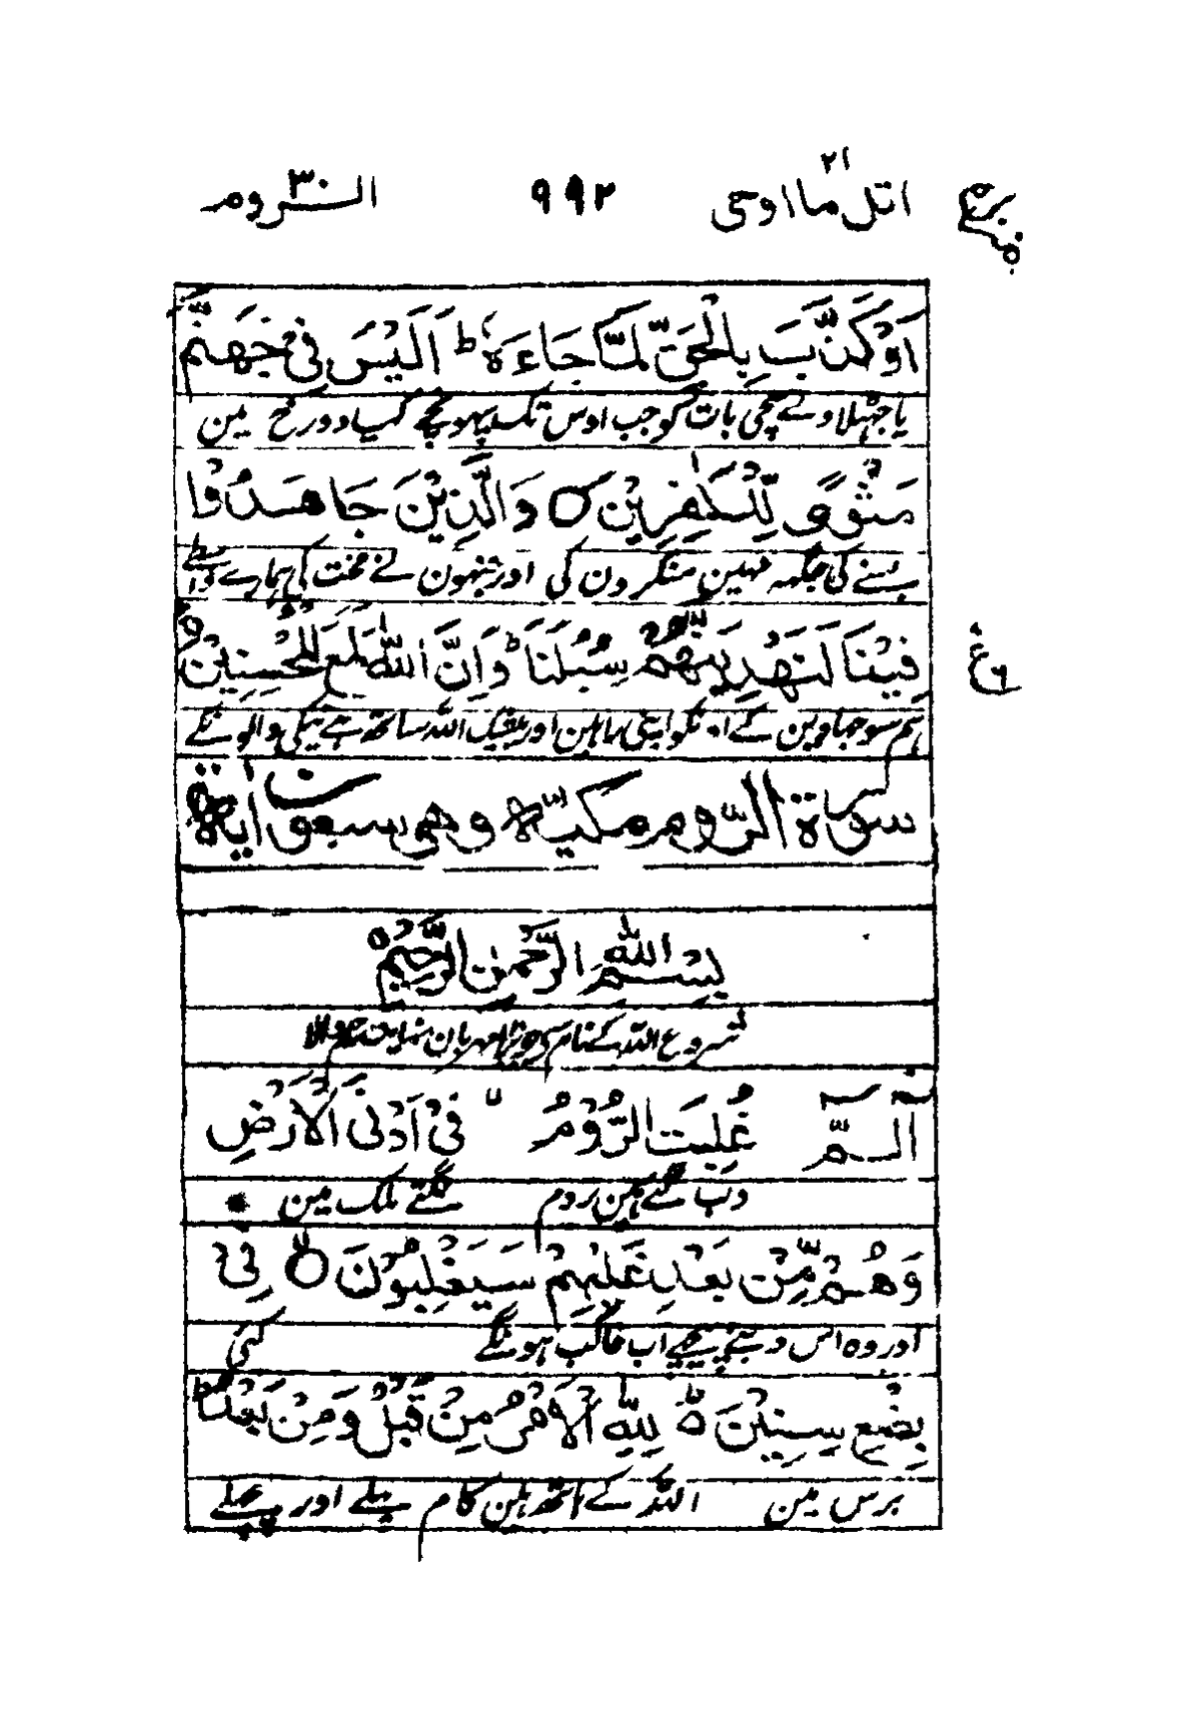 اتل ما اوحی ۲۱ ۹۹۲ الروم ۳۰
اَوْ كَذَّبَ بِالْحَقِّ لَمَّا جَاءَهٗ ط اَلَيْسَ فِیْ جَهَنَّمَ
یا جھٹلاوے سچی بات کو جب اوس تک پہونچے کیا دوزخ مین
مَثْوًى لِّلْكٰفِرِيْنَ ○ وَالَّذِيْنَ جَاهَدُوْا
بسنے کی جگہہ نہین منکرون کی اور جنہون نے محنت کی ہمارے واسطے
فِيْنَا لَنَهْدِيَنَّهُمْ سُبُلَنَا ط وَاِنَّ اللّٰهَ لَمَعَ الْمُحْسِنِيْنَ ○
ع ٦
ہم سوجہاوین گے اونکو اپنی راہین اور بیشک اللہ ساتھ ہے نیکی والونکے
سورة الروم مكيّة وهی ستون آية
بِسْمِ اللّٰهِ الرَّحْمٰنِ الرَّحِيْمِ ○
شروع اللہ کے نام سے جو بڑا مہربان نہایت رحم والا
الٓـمّٓ غُلِبَتِ الرُّوْمُ ۙ فِیْ اَدْنَی الْاَرْضِ
دب گئے ہین روم لگتے ملک مین
وَهُمْ مِّنْ بَعْدِ غَلَبِهِمْ سَيَغْلِبُوْنَ ○ ۙ فِیْ
اور وہ اس دبنے پیچھے اب غالب ہونگے کئی
بِضْعِ سِنِيْنَ ۵ ط لِلّٰهِ الْاَمْرُ مِنْ قَبْلُ وَمِنْ بَعْدُ ط
برس مین اللہ کے ہاتھ ہین کام پہلے اور پچھلے